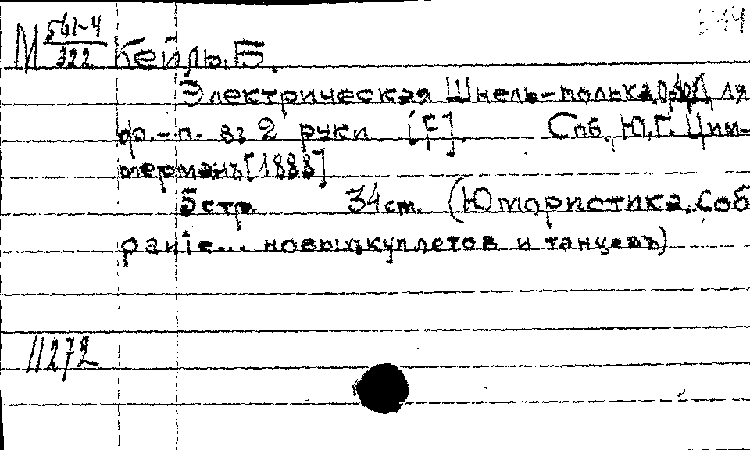 М 541-4/322 Кейль, Б.
Электрическая Шнель-полька, Ля
фо.-п. в 2 руки [F]. Спб, Ю.Г. Цим-
мерманъ [1888]
5 стр. 34 ст. (Юмористика. Соб
ранiе... новыхъ куплетов и танцевъ)
11272